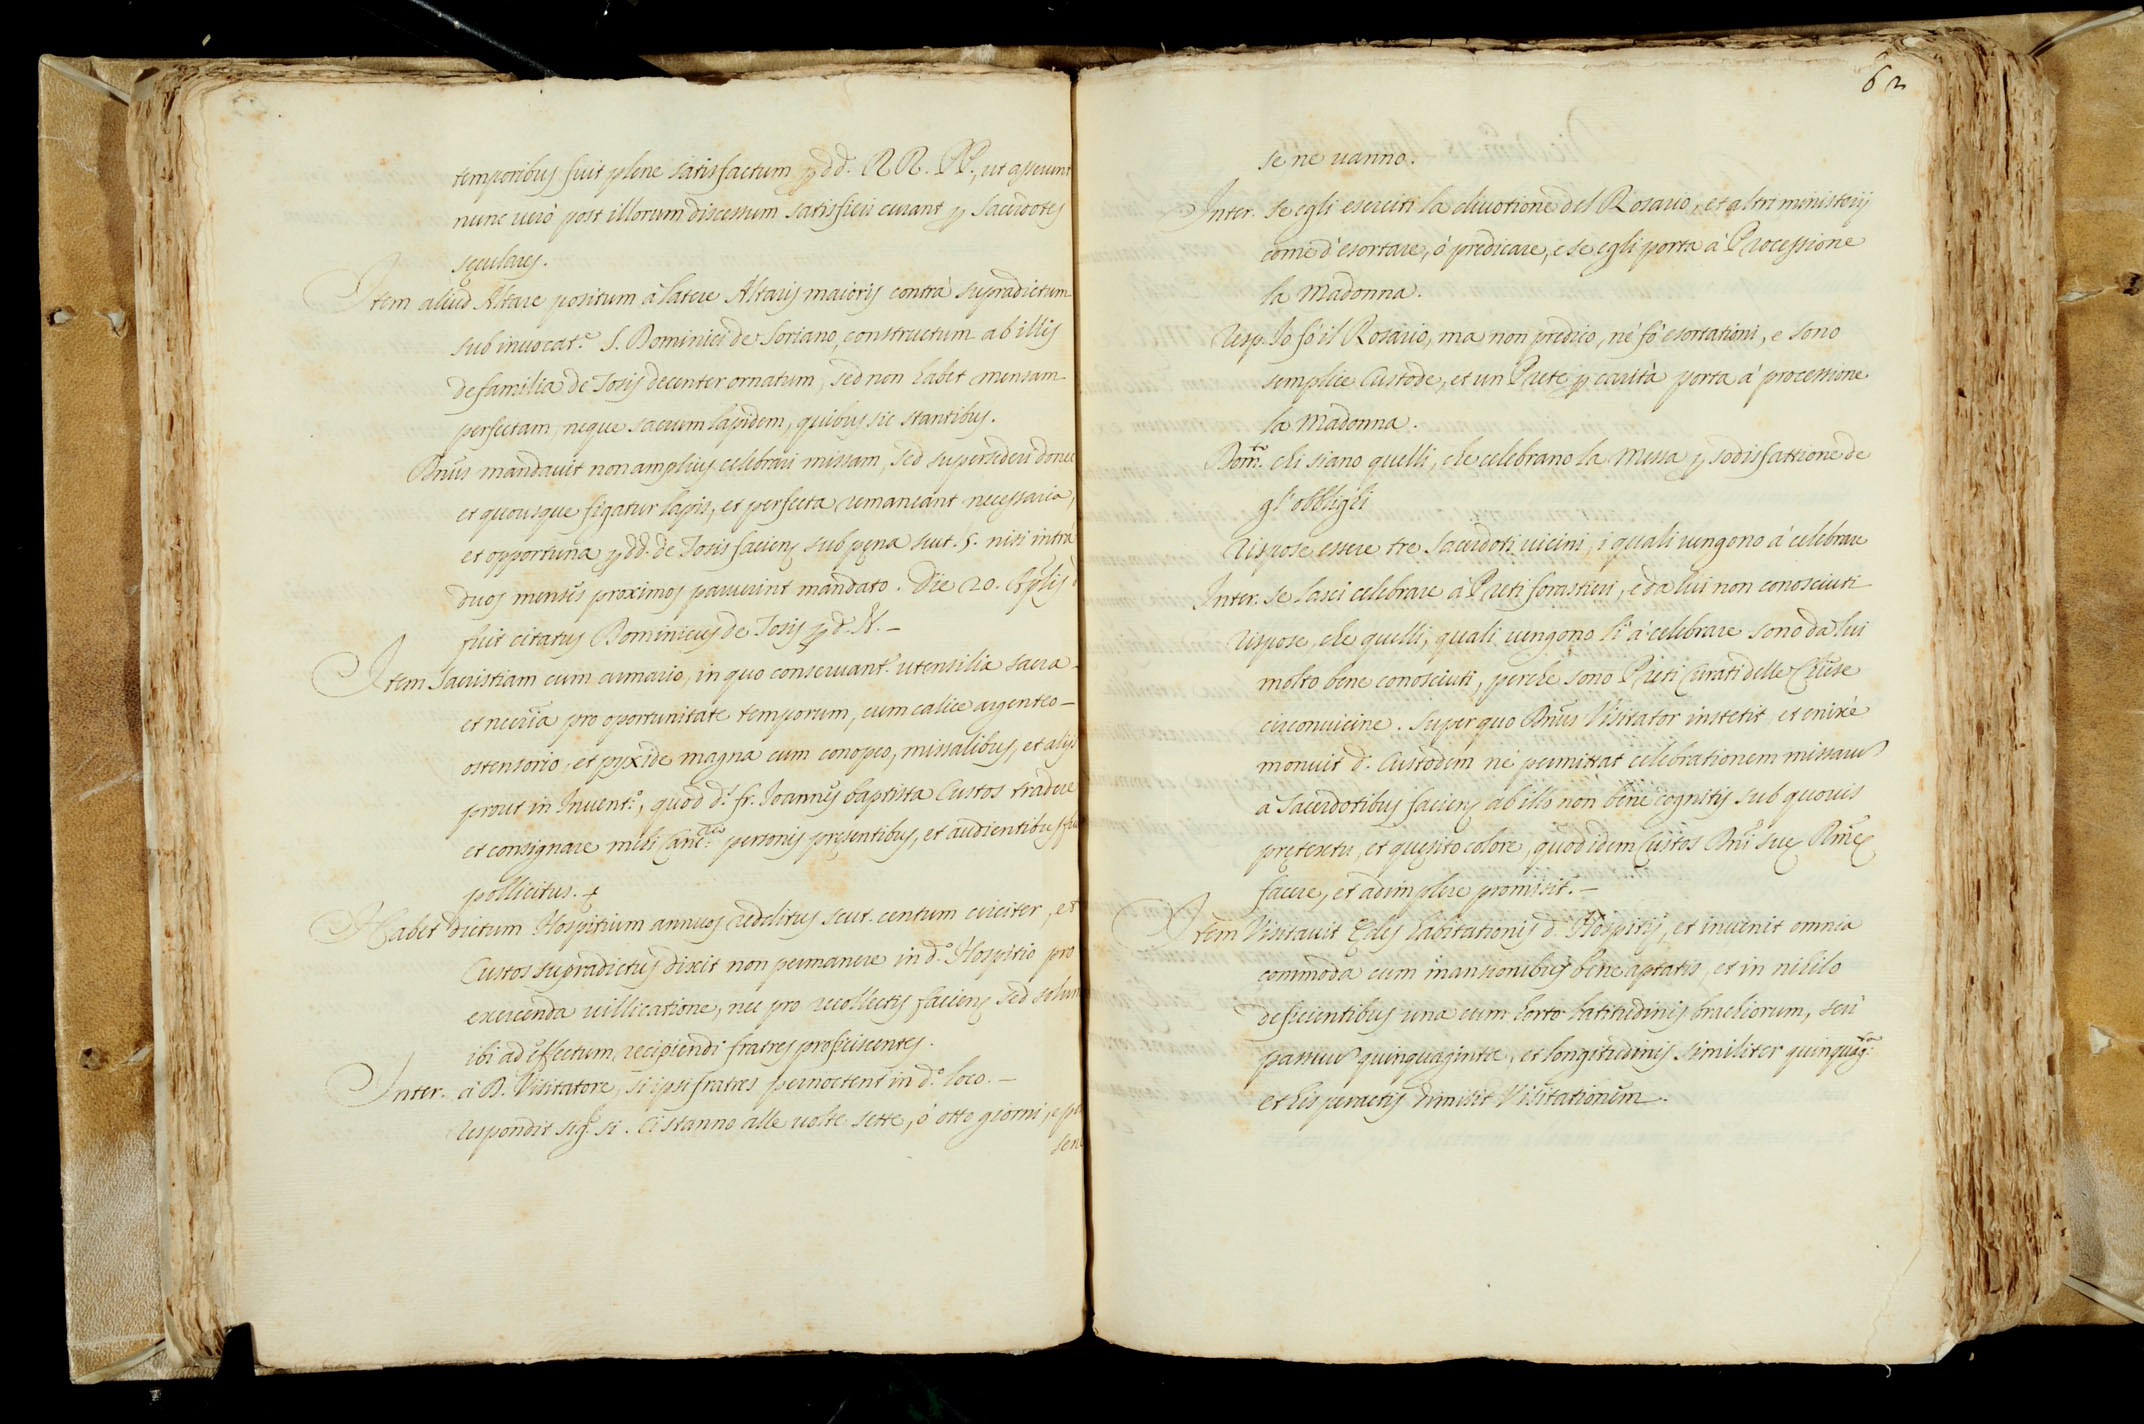 temporibus fuit plene satisfactum p dd. RR. PP., ut asserunt
nunc verò post illorum discessum satisfieri curant p Sacerdotes
sęculares.
Item aliud Altare positum à latere Altaris maioris contrà supradictum
sub invocat.e S. Dominici de Soriano, constructum ab illis
de familia de Tosis decenter ornatum, sed non habet mensam
perfectam, neque sacrum lapidem, quibus sic stantibus.
Dnus mandavit non amplius celebrari missam, sed supersederi donec
et quousque figatur lapis, et perfecta remaneant necessaria,
et opportuna p dd. de Tosis facien. sub pęna scut. 5. nisi intrà
duos menses proximos paruerint mandato. Die 20. Aplis
fuit citatus Dominicus de Tosis p d. N. –
Item Sacristiam cum armario, in quo conservant.r utensilia sacra
et necria pro oportunitate temporum, cum calice argenteo –
ostensorio, et pyxide magna cum conopeo, missalibus, et alijs
prout in Invent.o, quod d.s fr. Joannes baptista Custos tradere
et consignare mihi Canc.rio personis pręsentibus, et audientibus
pollicitus. +
Habet dictum Hospitium annuos redditus scut. centum circiter, et
Custos supradictus dixit non permanere in d.o Hospitio pro
exercenda villicatione, nec pro recollectis facien. sed solum
ibi ad effectum recipiendi fratres proficiscentes.
Inter. à D. Visitatore, si ipsi fratres pernoctent in d.o loco. –
Respondit sig.r si. Ci stanno alle volte sette, ò otto giorni, e poi
sene
62
se ne vanno.
Inter. Se egli eserciti la divotione del Rosario, et altri ministerij
come d'esortare, ò predicare, e se egli porta à Processione
la Madonna.
Resp. Io fò il Rosario, ma non predico, nè fò esortationi, e sono
semplice Custode, et un Prete p carità porta à processione
la Madonna.
chi siano quelli, che celebrano la Messa p sodisfattione de
gl'obblighi
Rispose essere tre Sacerdoti vicini, i quali vengono à celebrare
Inter. Se lasci celebrare à Preti forastieri, e da lui non conosciuti
Rispose, che quelli, quali vengono lì à celebrare sono da lui
molto bene conosciuti, perche sono Preti Curati delle Chiese
circonvicine. Super quo Dnus Visitator institit, et enixè
monuit d. Custodem nè permittat celebrationem missarum
à Sacerdotibus facien. ab illo non bene cognitis sub quovis
prętextu, et quęsito colore, quod idem Custos Dni suę Rmę
facere, et adimplere promisit. –
Item Visitavit Ędes habitationis d. Hospitij, et invenit omnia
commoda cum mansionibus bene aptatis, et in nihilo
deficientibus una cum horto latitudinis brachiorum, seù
passuum quinquaginta, et longitudinis similiter quinquag.ta
et his peractis dimisit Visitationem.